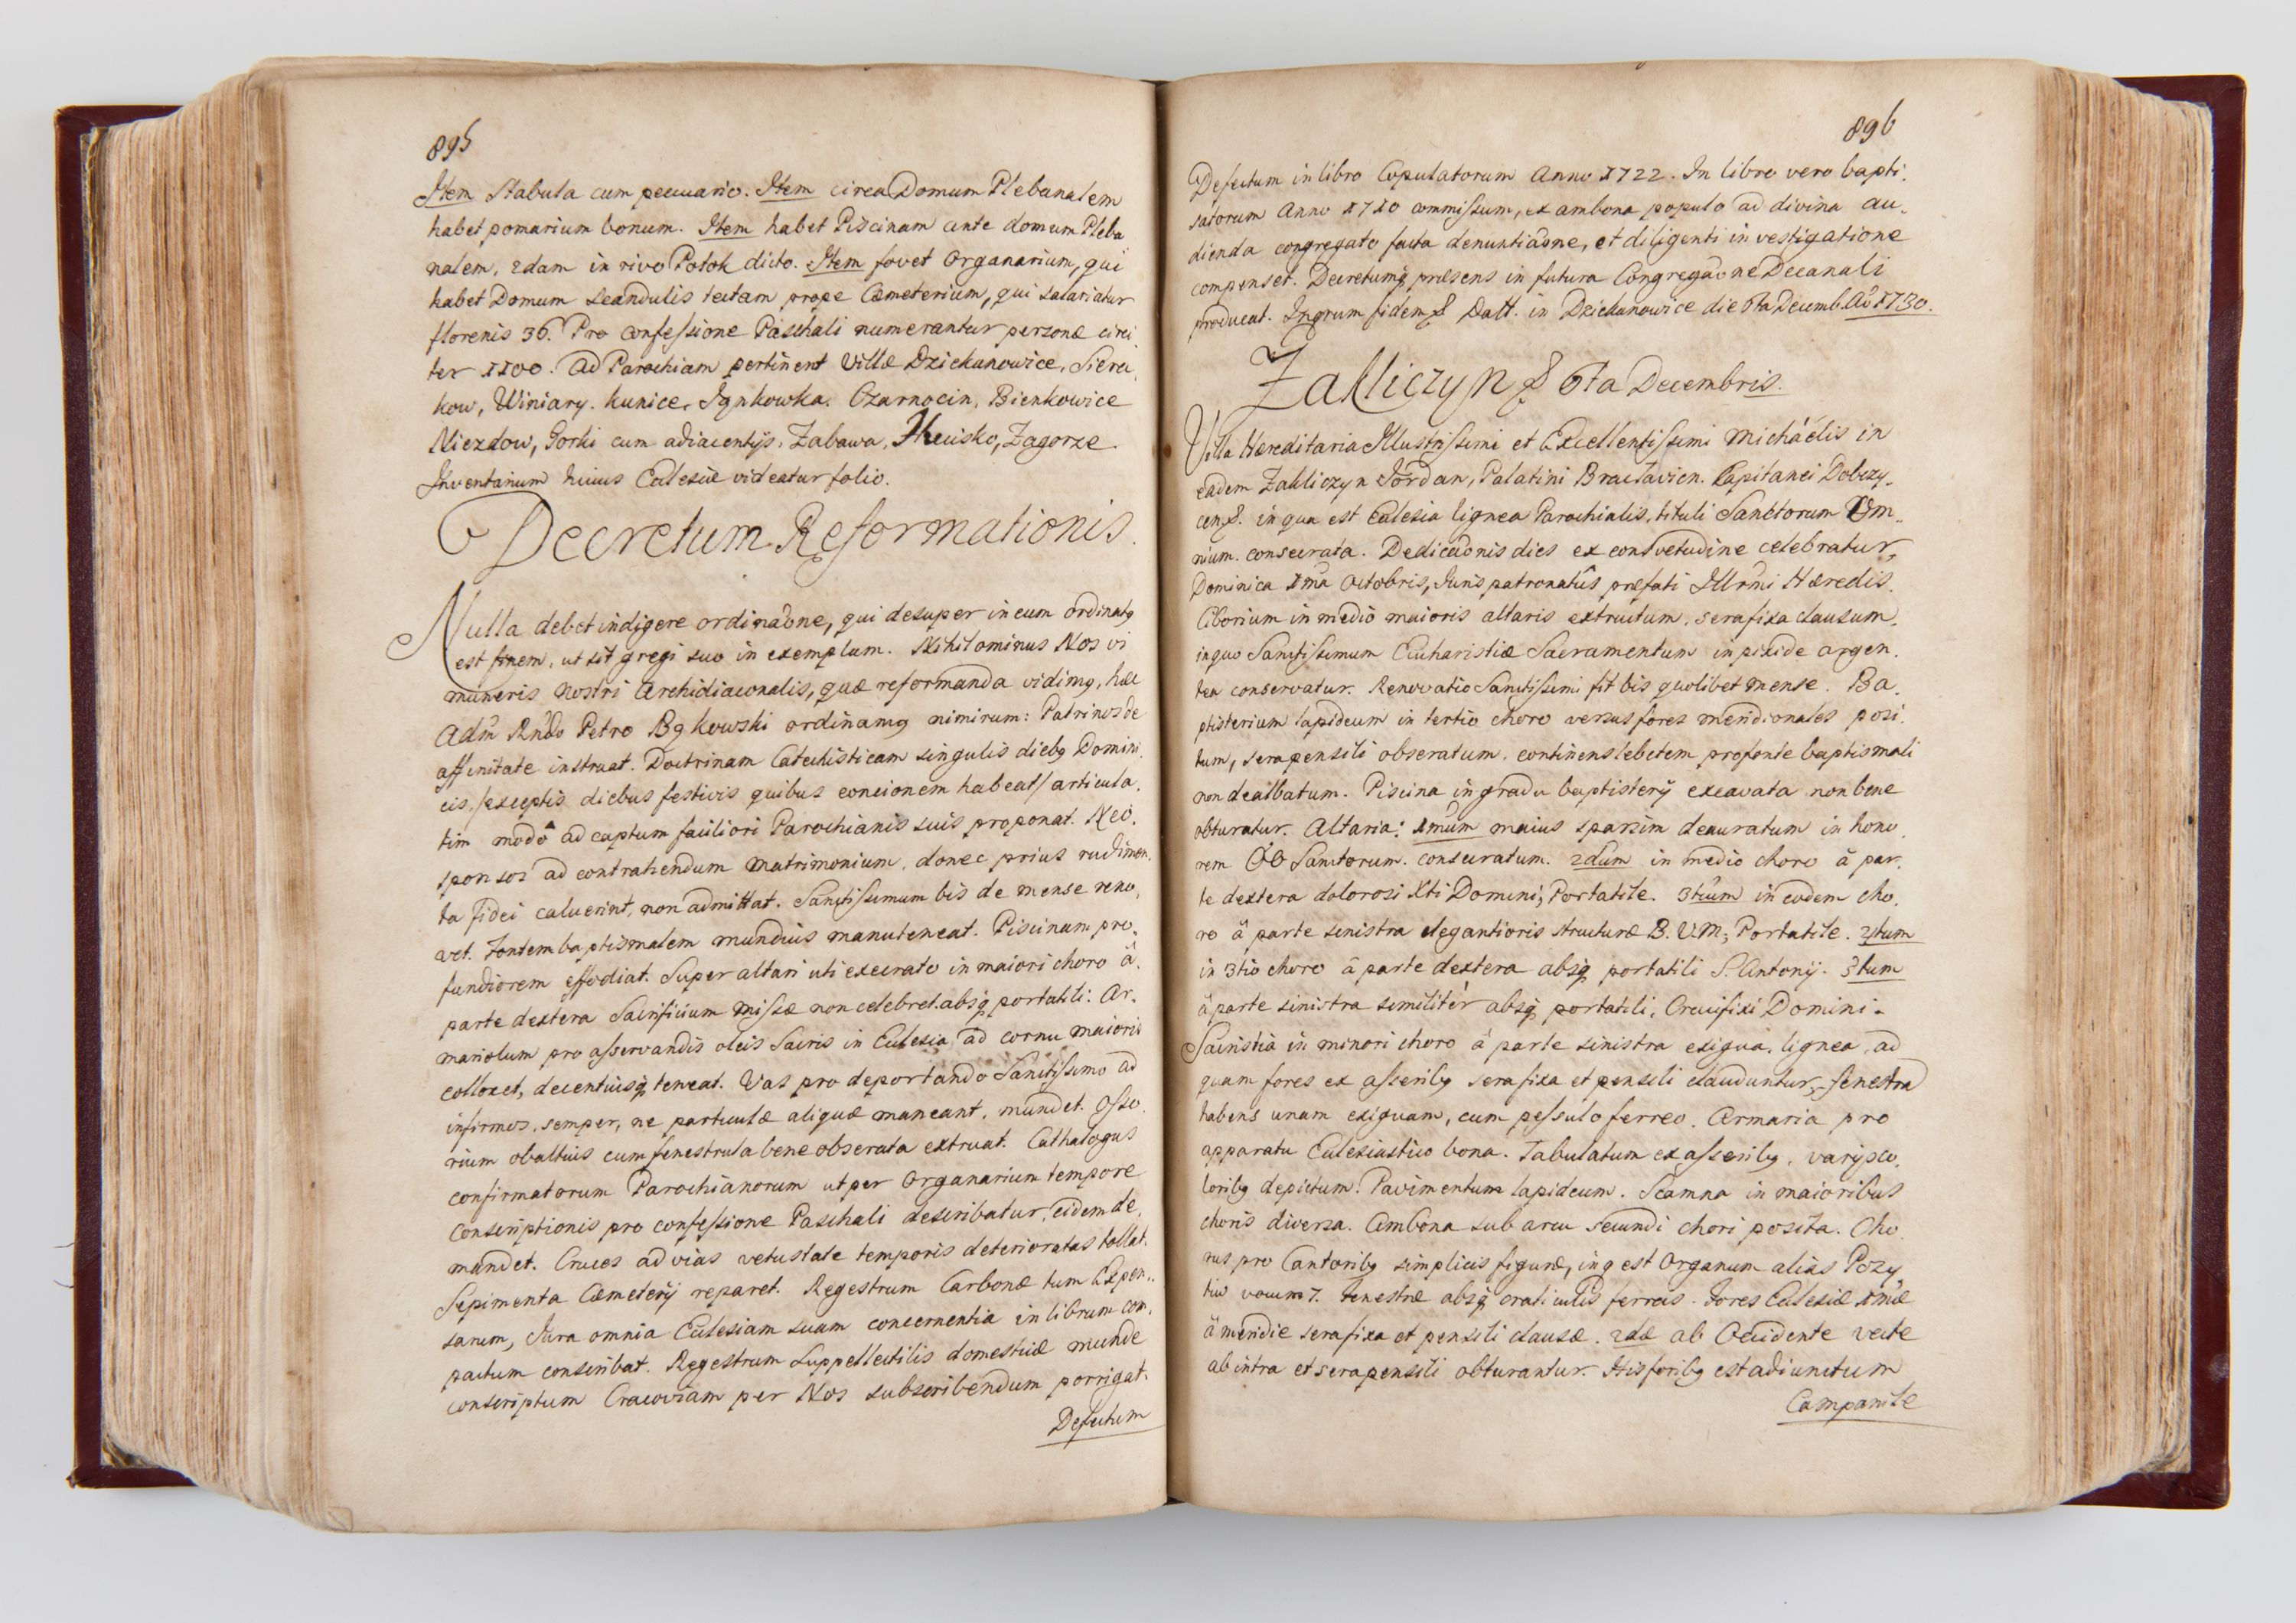 895
Item Stabula cum pecuario. Item circa Domum Plebanalem
habet pomarium bonum. Item habet Piscinam ante domum Pleba
nalem, 2dam in rivo Potok dicto. Item fovet Organarium, qui
habet Domum scandulis tectam prope Cæmeterium, qui salariatur
florenis 36. Pro confessione Paschali numerantur personæ circi,
ter 1100. Ad Parochiam pertinent Villæ Dziekanowice, Siera,
kow, Winiary. Kunice, Ignkowka. Czarnocin, Bienkowice
Niezdow, Gorki cum adiacentijs, Zabawa, Hucisko, Zagorze
Inventarium huius Ecclesiæ videatur folio.
Decretum Reformationis.
Nulla debet indigere ordinaone, qui desuper in eum ordinatq
est finem, ut sit gregi suo in exemplum. Nihilominus Nos vi
muneris nostri Archidiaconalis, quæ reformanda vidimq, hæc
Adm Rndo Petro Bąkowski ordinamq nimirum: Patrinos de
affinitate instruat. Doctrinam Catechisticam singulis diebq Domini
cis, /exceptis diebus festivis quibus concionem habeat/ articula,
tim modo ad captum faciliori Parochianis suis proponat. Neo,
sponsos ad contrahendum matrimonium, donec prius rudimen,
ta fidei caluerint, non admittat. Sanctissimum bis de mense reno,
vet. Fontem baptismalem mundius manuteneat. Piscinam pro,
fundiorem effodiat. Super altari uti execrato in maiori choro â
parte dextera Sacrificium Missæ non celebret absq portatili. Ar,
mariolum pro asservandis oleis Sacris in Ecclesia ad cornu maioris
collocet, decentiusq teneat. Vas pro deportando Sanctissimo ad
infirmos, semper, ne particulæ aliquæ maneant, mundet. Osso,
rium obaltius cum fenestrula bene obserata extruat. Cathalogus
confirmatorum Parochianorum ut per Organarium tempore
conscriptionis pro confessione Paschali describatur, eidem de,
mandet. Cruces ad vias vetustate temporis deterioratas tollat.
Sepimenta Cæmeterij reparet. Regestrum Carbonæ tum Expen,
sarum, Jura omnia Ecclesiam suam concernentia in librum com,
pactum conscribat. Regestrum Suppellectilis domesticæ munde
conscriptum Cracoviam per Nos subscribendum porrigat.
Defectum
896
Defectum in libro Copulatorum Anno 1722. In libro vero bapti,
satorum Anno 1710 commissum, ex ambona populo ad divina au,
dienda congregato facta denuntiaone, et diligenti investigatione
compenset. Decretumq præsens in futura Congregaone Decanali
producat. Inqrum fidem & Datt. in Dziekanowice die 6ta Decemb. Ao 1730.
Zakliczyn & 6ta Decembris.
Villa Hæreditaria Illustrissimi et Excellentissimi Michaélis in
eadem Zakliczyn Jordan, Palatini Braclavien. Capitanei Dobczy,
cen&. in qua est Ecclesia lignea Parochialis, tituli Sanctorum Om,
nium. consecrata. Dedicaonis dies ex consvetudine celebratur,
Dominica 1ma Octobris, Juris patronatûs præfati Illrmi Hæredis.
Ciborium in medio maioris altaris extructum, sera fixa clausum,
in quo Sanctissimum Eucharistiæ Sacramentum in pixide argen,
tea conservatur. Renovatio Sanctissimi fit bis quolibet mense. Ba,
ptisterium lapideum in tertio choro versus fores meridionales posi,
tum, sera pensili obseratum, continens lebetem pro fonte baptismali
non dealbatum. Piscina in gradu baptisterij excavata non bene
obturatur. Altaria: 1mum maius sparsim deauratum in hono,
rem OO Sanctorum. consecratum. 2dum in medio choro â par,
te dextera dolorosi Xti Domini, Portatile. 3tium in eodem cho,
ro â parte sinistra elegantioris structuræ B.V.M; Portatile. 4tum
in 3tio choro â parte dextera absq portatili S. Antonij. 5tum
â parte sinistra similitèr absq portatili, Crucifixi Domini.
Sacristia in minori choro â parte sinistra exigua, lignea, ad
quam fores ex asseribq sera fixa et pensili clauduntur, fenestra
habens unam exiguam, cum pessulo ferreo. Armaria pro
apparatu Ecclesiastico bona. Tabulatum ex asseribq, varijs co,
loribq depictum. Pavimentum lapideum. Scamna in maioribus
choris diversa. Ambona sub arcu secundi chori posita. Cho,
rus pro Cantoribq simplicis figuræ, in q est Organum alias Pozy
tiw vocum 7. Fenestræ absq craticulis ferreis. Fores Ecclesiæ 1mæ
â meridie sera fixa et pensili clausæ. 2dæ ab Occidente vecte
ab intra et sera pensili obturantur. His foribq est adiunctum
Campanile